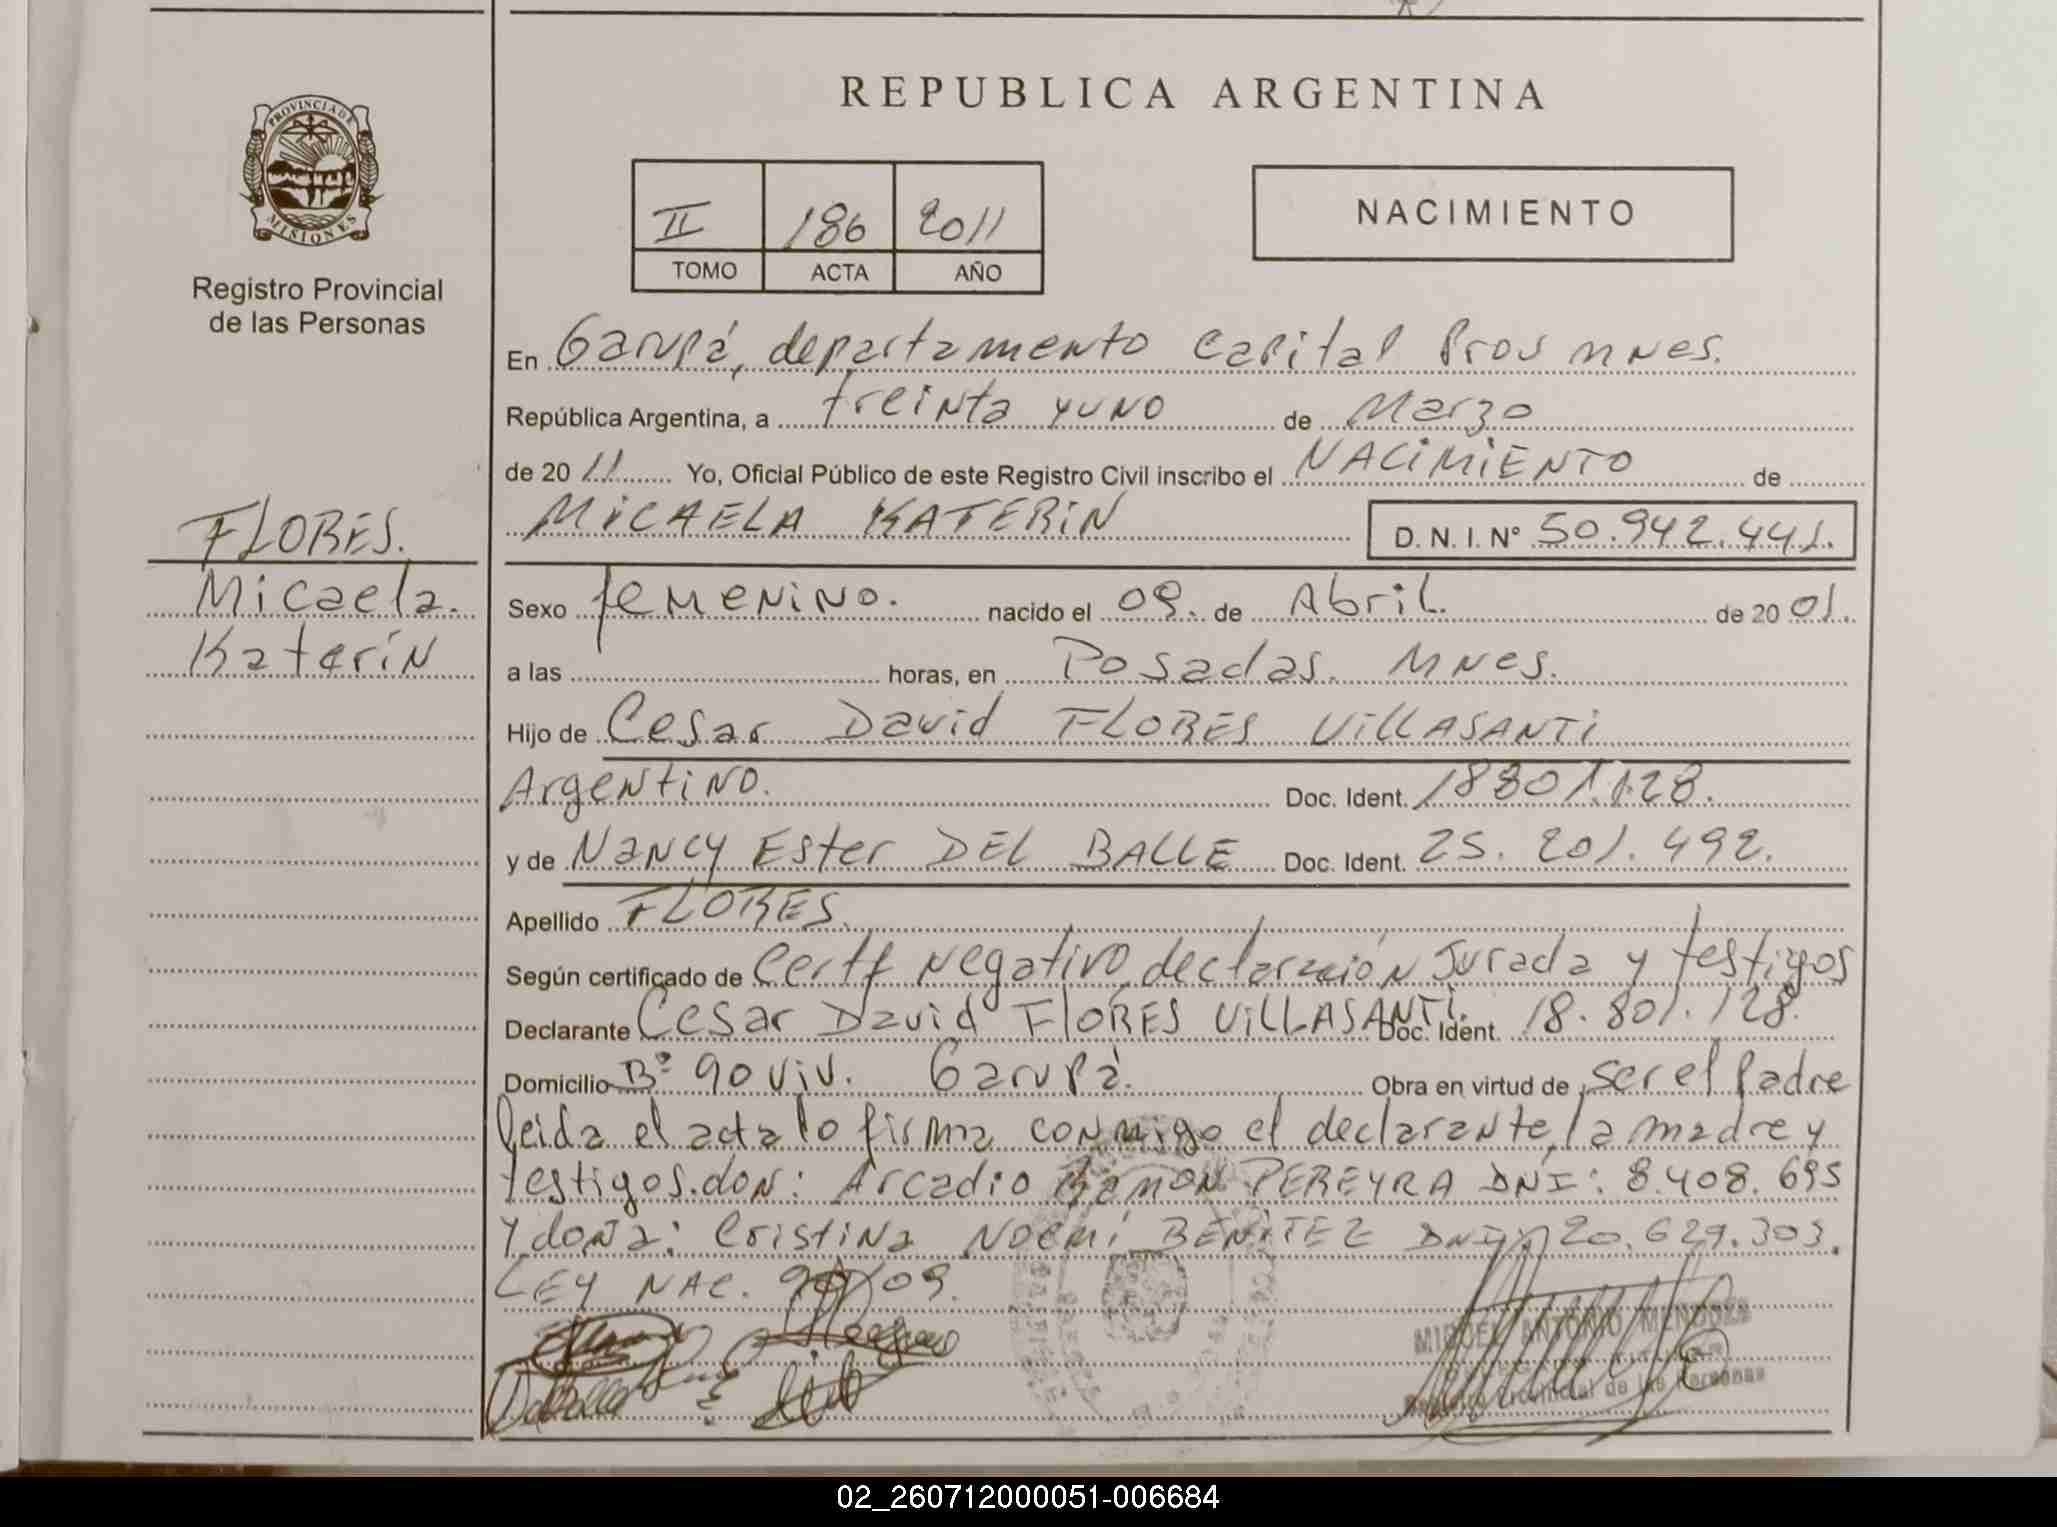 REPUBLICA ARGENTINA
PROVINCIA DE MISIONES
Registro Provincial
de las Personas
II 186 2011
TOMO ACTA AÑO
NACIMIENTO
En Garupá, departamento Capital Prov mnes.
República Argentina, a treinta y uno de Marzo
de 2011 Yo, Oficial Público de este Registro Civil inscribo el NACIMIENTO de
MICAELA KATERIN D. N. I. N° 50.942.441.
FLORES.
Micaela.
Katerin
Sexo femenino. nacido el 09. de Abril. de 2001.
a las horas, en Posadas. Mnes.
Hijo de Cesar David FLORES VILLASANTI
Argentino. Doc. Ident. 18801.128.
y de Nancy Ester DEL BALLE Doc. Ident. 25. 201. 492.
Apellido FLORES.
Según certificado de Certf negativo, declaración Jurada y testigos
Declarante Cesar David FLORES VILLASANTI. Doc. Ident. 18. 801. 128.
Domicilio B° 90 viv. Garupá. Obra en virtud de ser el Padre
leida el acta lo firma conmigo el declarante, la madre y
testigos. don: Arcadio Ramon PEREYRA DNI: 8.408.695
Y doña: Cristina Noemí BENITEZ DNI: 20.629.303.
LEY NAC.
MIGUEL ANTONIO MENDOZA
Registro Provincial de las Personas
02_260712000051-006684